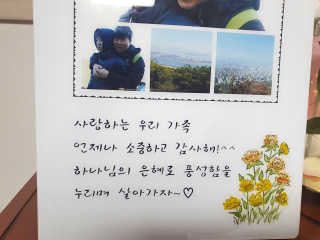 사랑하는 우리 가족
언제나 소중하고 감사해!^^
하나님의 은혜로 풍성함을
누리며 살아가자~♡